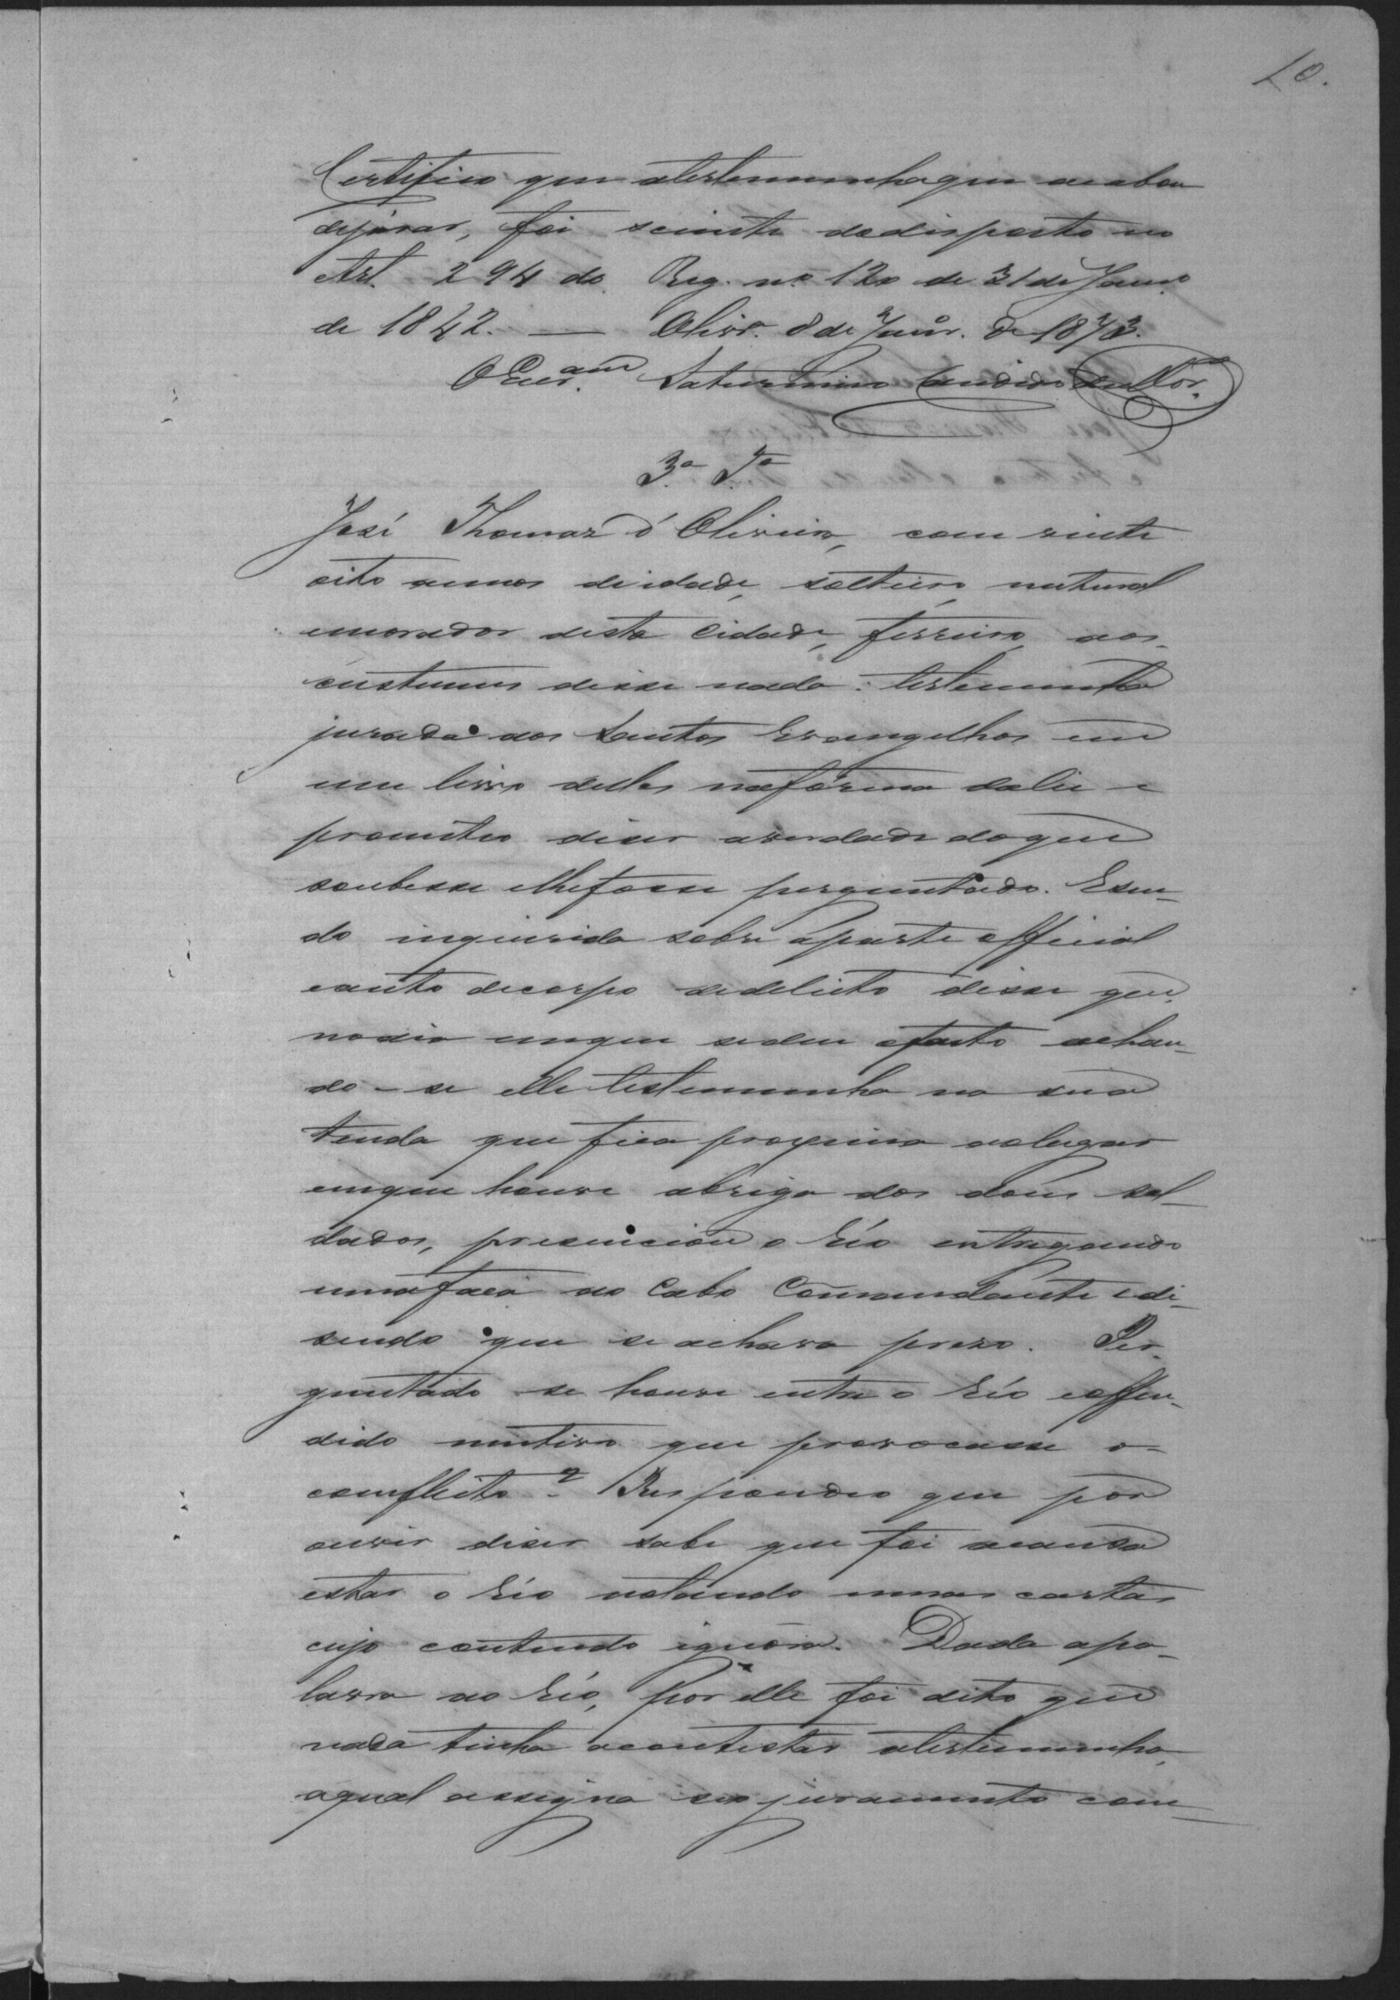 10.
Certifico que atestemunha que acabou
dejurar, foi sciente dodisposto no
Art. 294 do Reg. nº 120 de 31 de Janrº
de 1842. — Olivrª. 8 de Janrº. de 1873.
O Escram. Saturnino Candido
3ª Tª
José Thomaz d'Oliveira, com vinte
oito annos deidade, solteiro, natural
emorador desta Cidade, ferreiro, aos
custumes disse nada: testemunha
jurada aos Santos Evangelhos em
um livro delles naforma dalei e
prometteo diser averdade doque
soubesse elhefosse perguntado. Esen-
do inquirida sobre aparte official
eauto decorpo dedelicto disse que,
nodia emque sedeu ofacto achan-
do-se elle testemunha na sua
tenda que fica proxima aolugar
emque houve abriga dos dous sol-
dados, presenciou o Réo entregando
umafaca ao Cabo Commandante edi-
sendo que se achava prezo. Per-
guntado se houve entre o Réo eoffen-
dido motivo que provocasse o
conflicto? Respondeo que por
ouvir diser sabe que foi acausa
estar o Réo notando umas cartas
cujo contendo ignóra. Dada apa-
lavra ao Réo, por elle foi dito que
nada tinha acontestar atestemunha,
aqual assigna seo juramento com